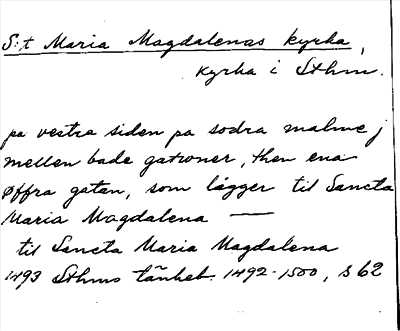 S:t Maria Magdalenas kyrka,
kyrka i Sthm.
pa vestra siden pa sodra malme j
mellen bade gatroner, then ena
øffra gatan, som lägger til Sancta
Maria Magdalena —
til Sancta Maria Magdalena
1493 Sthms tänkeb. 1492-1500, s 62